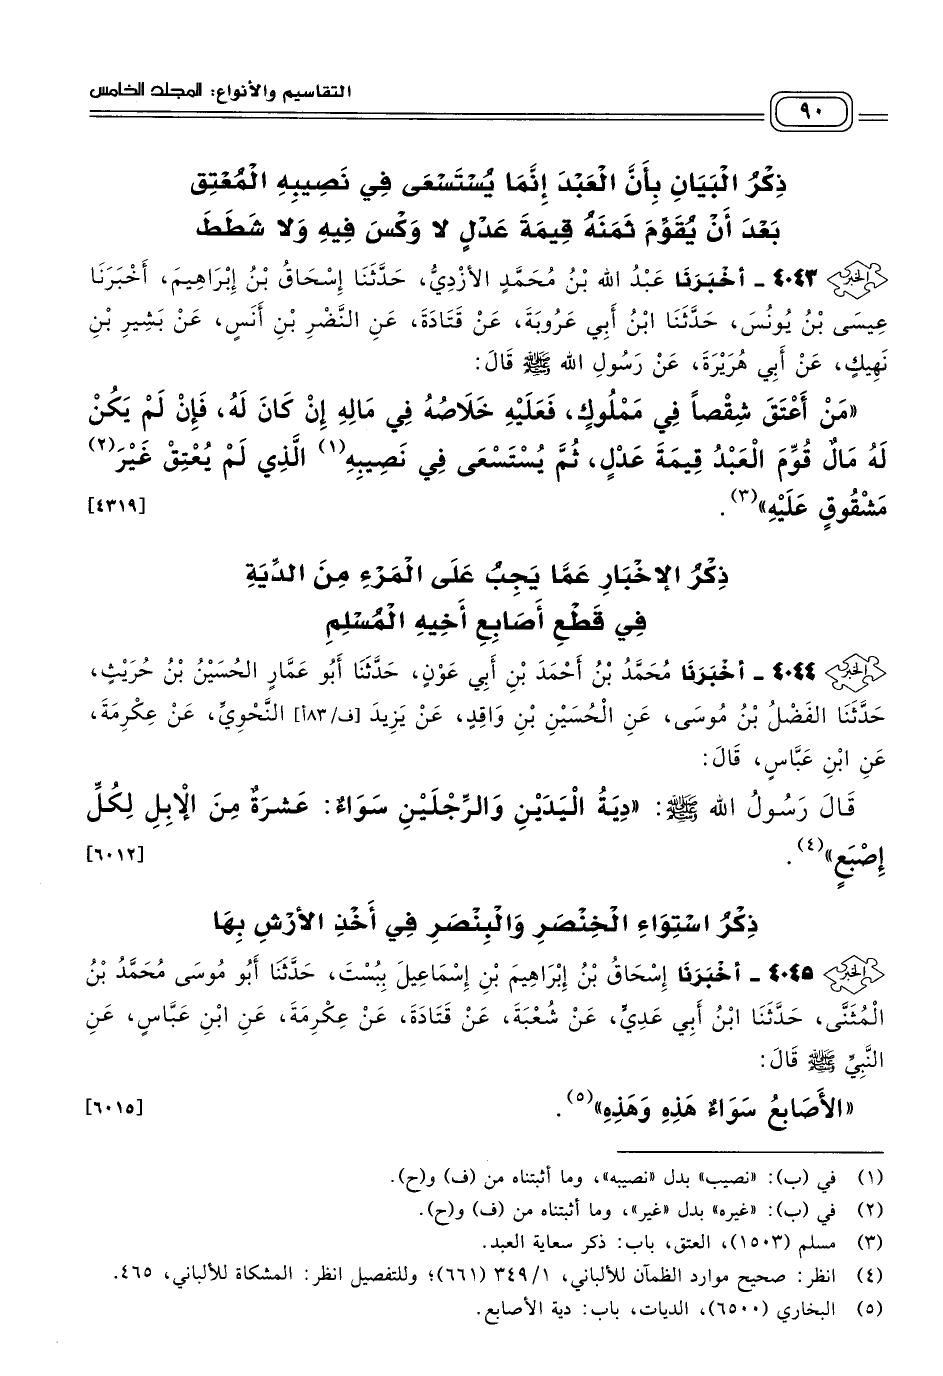 التقاسيم والأنواع: المجلد الخامس
٩٠
ذِكْرُ الْبَيَانِ بِأَنَّ الْعَبْدَ إِنَّمَا يُسْتَسْعَى فِي نَصِيبِهِ الْمُعْتِقِ
بَعْدَ أَنْ يُقَوَّمَ ثَمَنَهُ قِيمَةَ عَدْلٍ لا وَكْسَ فِيهِ وَلا شَطَطَ
الخبر ٤٠٤٣ ـ أخْبَرَنَا عَبْدُ الله بْنُ مُحَمَّدٍ الأَزْدِيُّ، حَدَّثَنَا إِسْحَاقُ بْنُ إِبْرَاهِيمَ، أَخْبَرَنَا
عِيسَى بْنُ يُونُسَ، حَدَّثَنَا ابْنُ أَبِي عَرُوبَةَ، عَنْ قَتَادَةَ، عَنِ النَّضْرِ بْنِ أَنَسٍ، عَنْ بَشِيرِ بْنِ
نَهِيكٍ، عَنْ أَبِي هُرَيْرَةَ، عَنْ رَسُولِ الله ﷺ قَالَ:
«مَنْ أَعْتَقَ شِقْصاً فِي مَمْلُوكٍ، فَعَلَيْهِ خَلَاصُهُ فِي مَالِهِ إِنْ كَانَ لَهُ، فَإِنْ لَمْ يَكُنْ
لَهُ مَالٌ قُوِّمَ الْعَبْدُ قِيمَةَ عَدْلٍ، ثُمَّ يُسْتَسْعَى فِي نَصِيبِهِ(١) الَّذِي لَمْ يُعْتِقْ غَيْرَ(٢)
مَشْقُوقٍ عَلَيْهِ»(٣). [٤٣١٩]
ذِكْرُ الإخْبَارِ عَمَّا يَجِبُ عَلَى الْمَرْءِ مِنَ الدِّيَةِ
فِي قَطْعِ أَصَابِعِ أَخِيهِ الْمُسْلِمِ
الخبر ٤٠٤٤ ـ أخْبَرَنَا مُحَمَّدُ بْنُ أَحْمَدَ بْنِ أَبِي عَوْنٍ، حَدَّثَنَا أَبُو عَمَّارٍ الحُسَيْنُ بْنُ حُرَيْثٍ،
حَدَّثَنَا الفَضْلُ بْنُ مُوسَى، عَنِ الْحُسَيْنِ بْنِ وَاقِدٍ، عَنْ يَزِيدَ [ف/٨٣أ] النَّحْوِيِّ، عَنْ عِكْرِمَةَ،
عَنِ ابْنِ عَبَّاسٍ، قَالَ:
قَالَ رَسُولُ الله ﷺ: «دِيَةُ الْيَدَيْنِ وَالرِّجْلَيْنِ سَوَاءٌ: عَشَرَةٌ مِنَ الْإِبِلِ لِكُلِّ
إِصْبَعٍ»(٤). [٦٠١٢]
ذِكْرُ اسْتِوَاءِ الْخِنْصَرِ وَالْبِنْصَرِ فِي أَخْذِ الأَرْشِ بِهَا
الخبر ٤٠٤٥ ـ أخْبَرَنَا إِسْحَاقُ بْنُ إِبْرَاهِيمَ بْنِ إِسْمَاعِيلَ بِبُسْتَ، حَدَّثَنَا أَبُو مُوسَى مُحَمَّدُ بْنُ
الْمُثَنَّى، حَدَّثَنَا ابْنُ أَبِي عَدِيٍّ، عَنْ شُعْبَةَ، عَنْ قَتَادَةَ، عَنْ عِكْرِمَةَ، عَنِ ابْنِ عَبَّاسٍ، عَنِ
النَّبِيِّ ﷺ قَالَ:
«الأَصَابِعُ سَوَاءٌ هَذِهِ وَهَذِهِ»(٥). [٦٠١٥]
(١) في (ب): «نصيب» بدل «نصيبه»، وما أثبتناه من (ف) و(ح).
(٢) في (ب): «غيره» بدل «غير»، وما أثبتناه من (ف) و(ح).
(٣) مسلم (١٥٠٣)، العتق، باب: ذكر سعاية العبد.
(٤) انظر: صحيح موارد الظمآن للألباني، ١/ ٣٤٩ (٦٦١)؛ وللتفصيل انظر: المشكاة للألباني، ٤٦٥.
(٥) البخاري (٦٥٠٠)، الديات، باب: دية الأصابع.